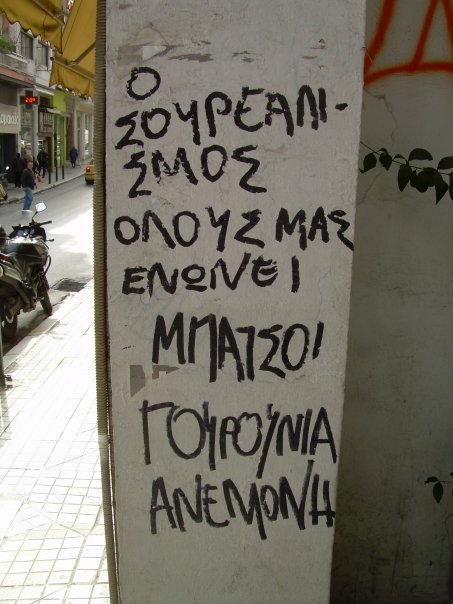 Ο
ΣΟΥΡΕΑΛΙ-
ΣΜΟΣ
ΟΛΟΥΣ ΜΑΣ
ΕΝΩΝΕΙ
ΜΠΑΤΣΟΙ
ΓΟΥΡΟΥΝΙΑ
ΑΝΕΜΟΝΗ